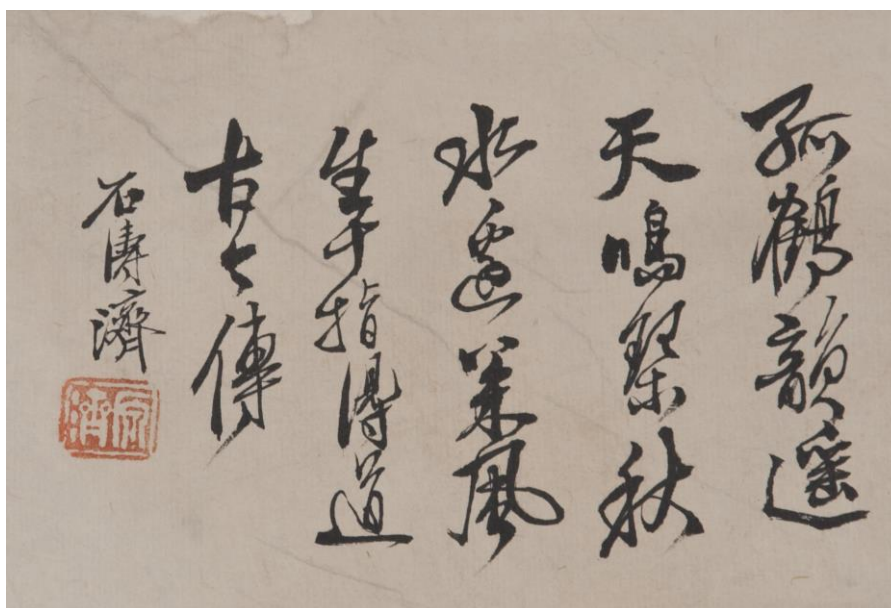 孤鶴韻遥
天鳴琴秋
水邊風
生于指得道
古之傳
石濤濟
原濟